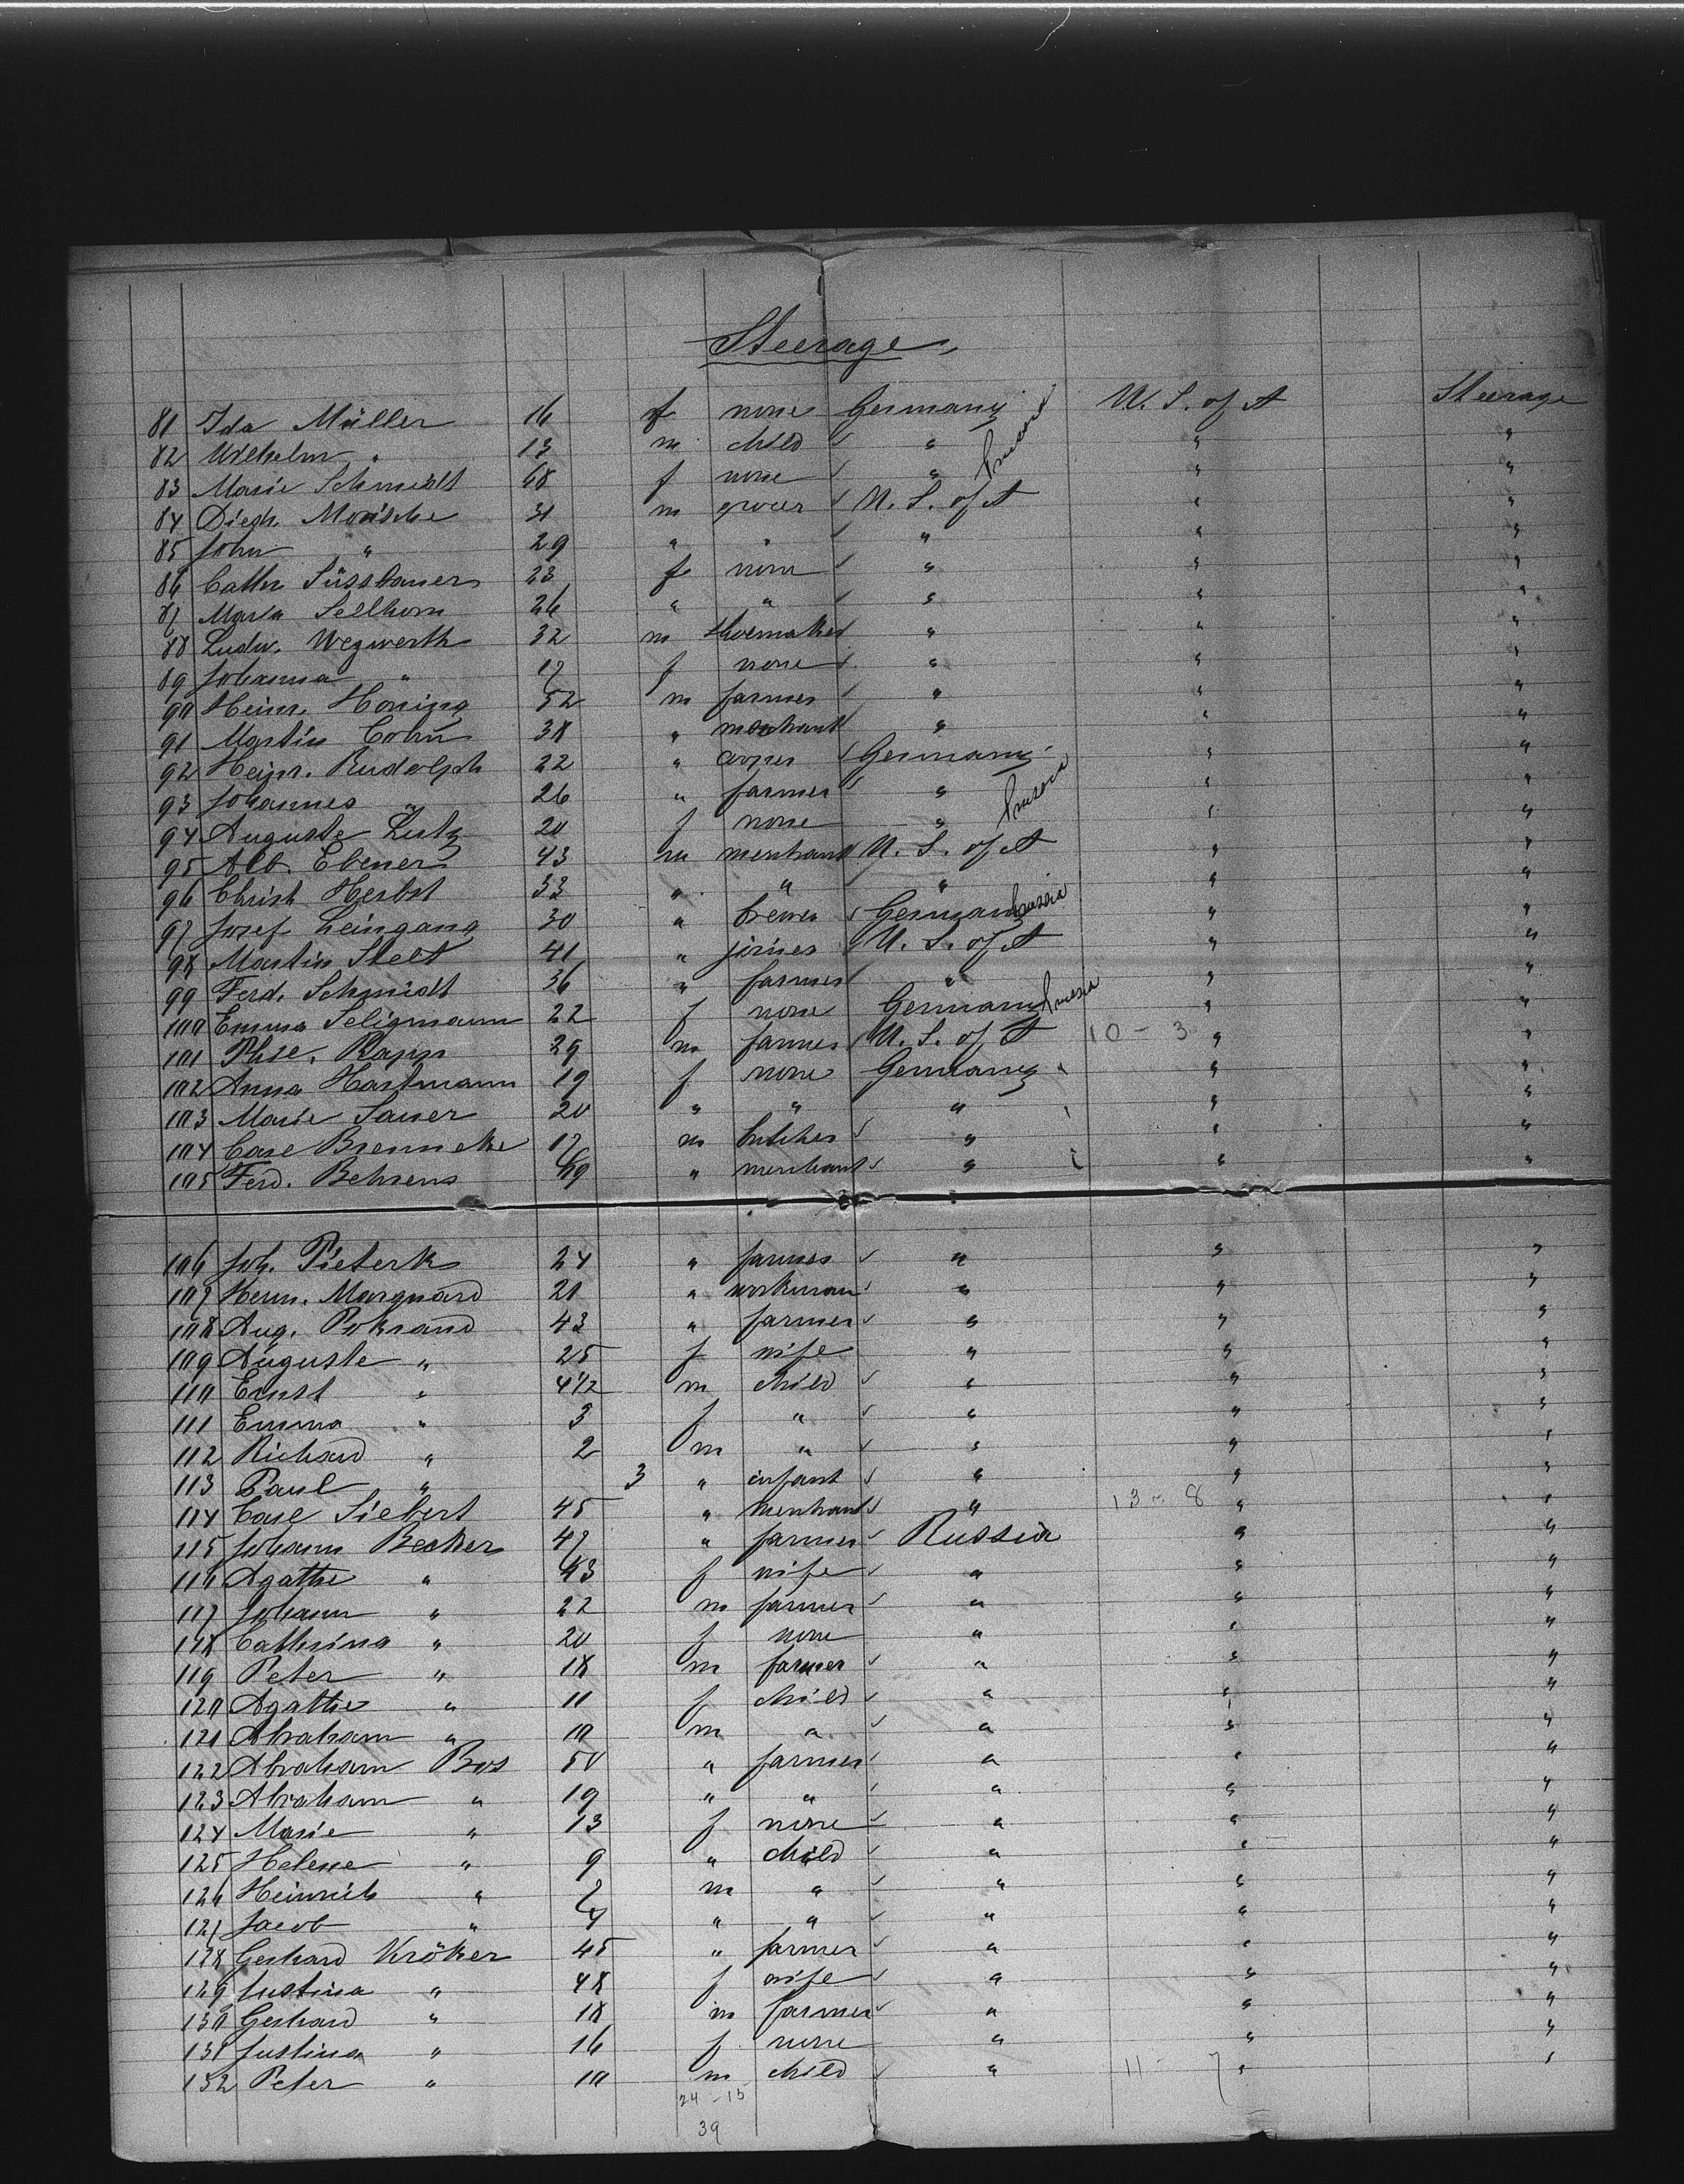 Steerage
81 Ida Müller 16 f none Germany U. S. of A Steerage
82 Wilhelm " 13 m child " " "
83 Marie Schmidt 68 f none " Prussia " "
84 Diedr. Monsche 31 m grocer U. S. of A " "
85 John " 29 " " " " "
86 Cathr Süssbauer 23 f none " " "
87 Maria Sellhorn 26 " " " " "
88 Ludw. Wegwerth 32 m shoemaker " " "
89 Johanna " 17 f none " " "
90 Heinr. Honing 52 m farmer " " "
91 Martin Cohn 38 " merchant " " "
92 Heinr. Rudolph 22 " Germany " "
93 Johannes " 26 " farmer " " "
94 Auguste Lutz 20 f none " Prussia " "
95 Alb. Ebener 43 m merchant U. S. of A " "
96 Christ Herbst 33 " " " " "
97 Josef Leingang 30 " brewer Germany Prussia " "
98 Martin Stelt 41 " joiner U. S. of A " "
99 Ferd. Schmidt 36 " farmer " " "
100 Emma Seligmann 22 f none Germany Prussia " "
101 Rapp 29 m farmer U. S. of A 10 - 3 " "
102 Anna Hartmann 19 f none Germany " "
103 Marie Sauer 20 " " " " "
104 Carl Brenneke 17 m butcher " " "
105 Ferd. Behrens 69 " merchant " " "
106 Joh. Pieterk 24 " farmer " " "
107 Herm. Marquard 21 " workman " " "
108 Aug. Pokrand 43 " farmer " " "
109 Auguste " 25 f wife " " "
110 Ernst " 4 1/2 m child " " "
111 Emma " 3 f " " " "
112 Richard " 2 m " " " "
113 Paul " 3 " infant " " "
114 Carl Siebert 45 " merchant " 13 - 8 " "
115 Johann Becker 47 " farmer Russia " "
116 Agathe " 43 f wife " " "
117 Johann " 22 m farmer " " "
118 Cathrina " 20 f none " " "
119 Peter " 18 m farmer " " "
120 Agathe " 11 f child " " "
121 Abraham " 10 m " " " "
122 Abraham Bos 50 " farmer " " "
123 Abraham " 19 " " " " "
124 Marie " 13 f none " " "
125 Helene " 9 " child " " "
126 Heinrich " 7 m " " " "
127 Jacob " 4 " " " " "
128 Gerhard Kröker 45 " farmer " " "
129 Justina " 48 f wife " " "
130 Gerhard " 18 m farmer " " "
131 Justina " 16 f none " " "
132 Peter " 10 m child " 11 - 7 " "
24 - 15
39